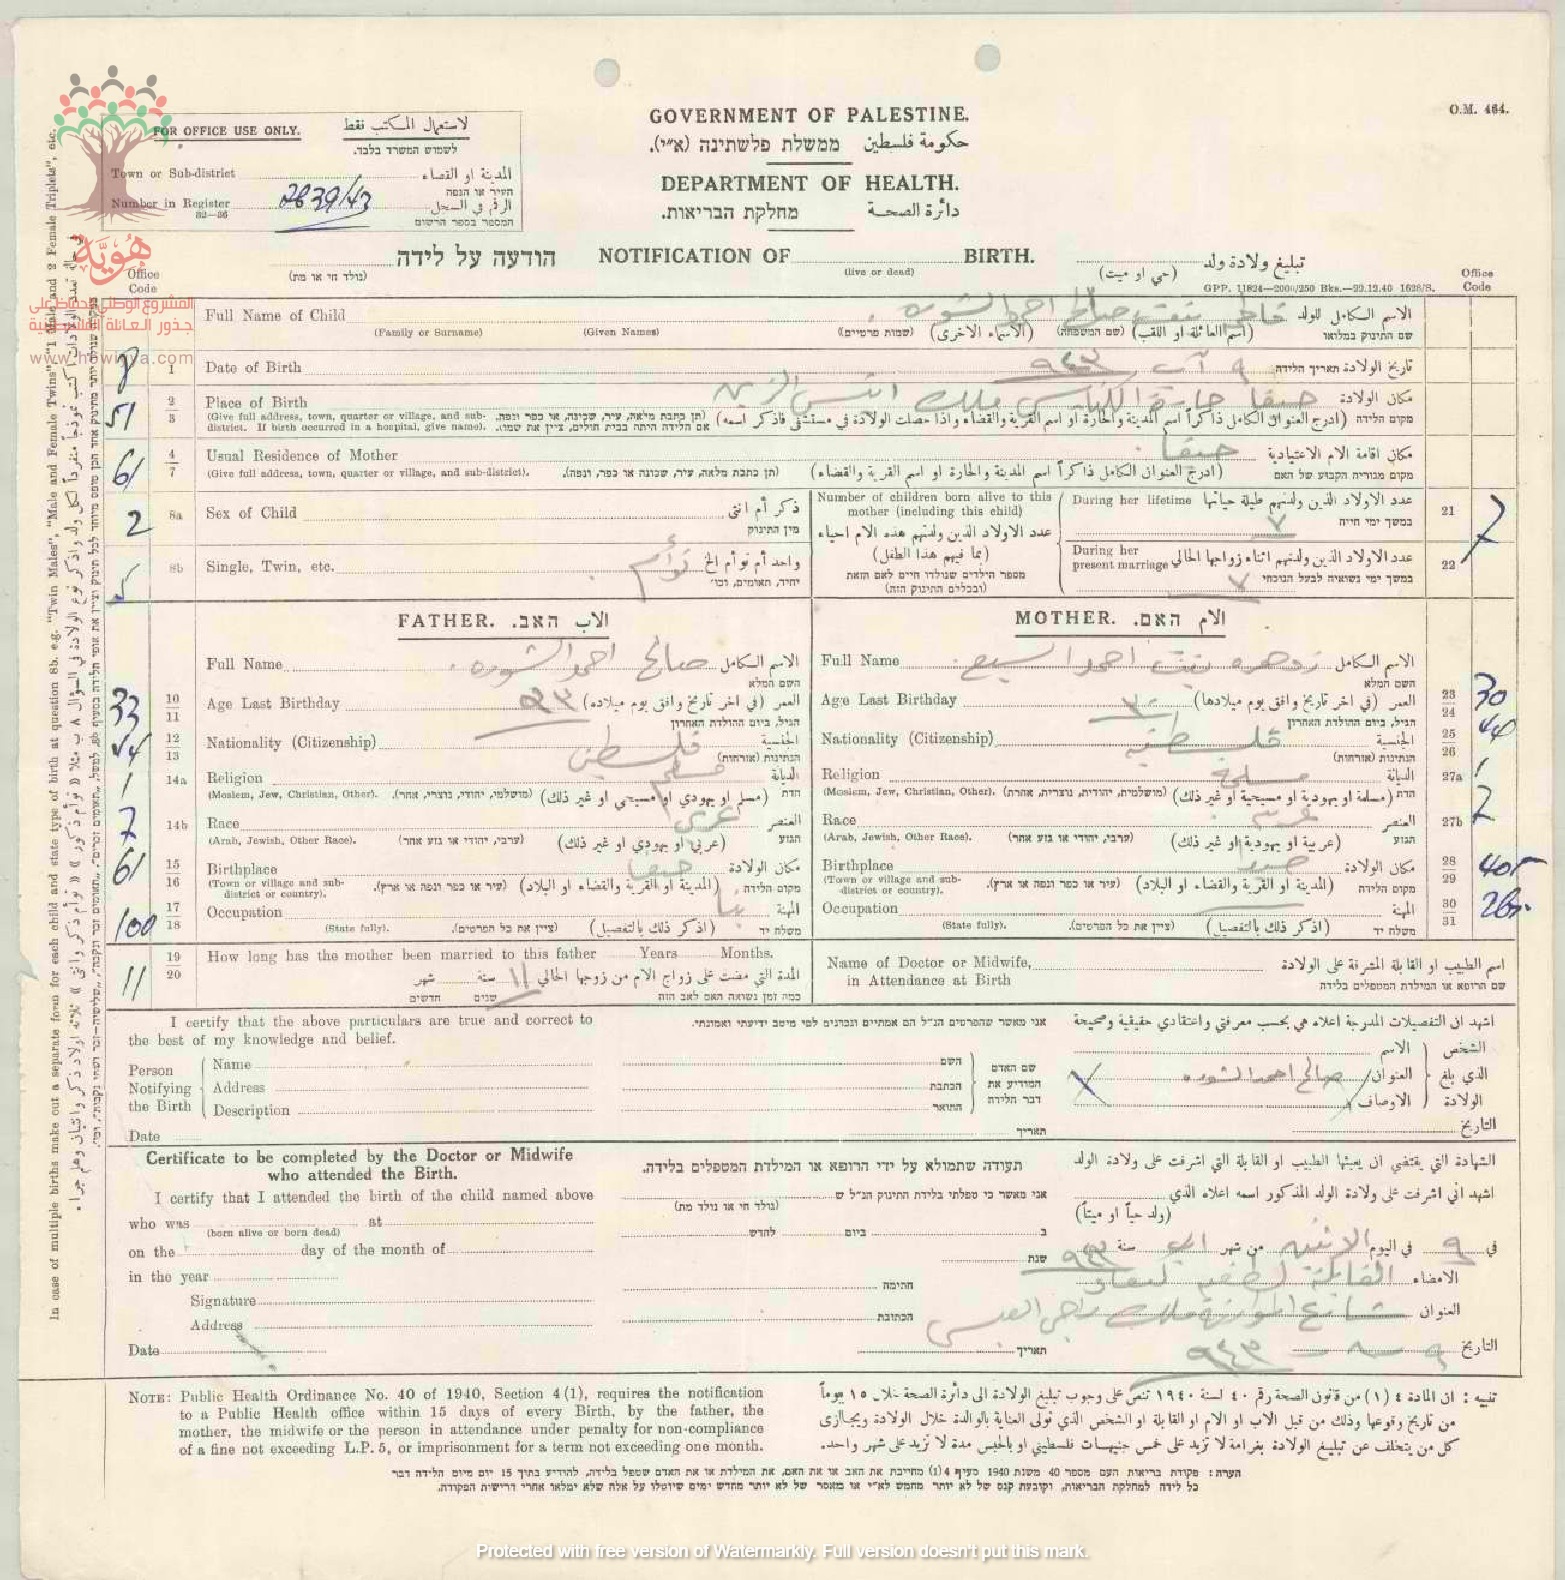 O.M. 464.
GOVERNMENT OF PALESTINE.
حكومة فلسطين ממשלת פלשתינה (א״י).
DEPARTMENT OF HEALTH.
دائرة الصحة מחלקת הבריאות.
FOR OFFICE USE ONLY. لاستعمال المكتب فقط
לשמוש המשרד בלבד.
Town or Sub-district المدينة او القضاء
העיר או הנפה
Number in Register 2839/43 الرقم في السجل
82—86 המספר בספר הרשום
הודעה על לידה NOTIFICATION OF BIRTH. تبليغ ولادة ولد
(נולד חי או מת) (live or dead) (حي او ميت)
GPP. 11824—2000/250 Bks.—22.12.40 1628/S.
Office Code Office Code
هُوِيَّة
المشروع الوطني للحفاظ على
جذور العائلة الفلسطينية
www.howiyya.com
Full Name of Child صالح احمد الاسم الكامل للولد
(Family or Surname) (Given Names) (שמות פרטיים) (الاسماء الاخرى) (שם המשפחה) (اسم العائلة او اللقب) שם התינוק במלואו
1 Date of Birth ٩ آب ٩٤٣ تاريخ الولادة תאריך הלידה
51 2 3 Place of Birth حيفا حارة الكنايس ملك مكان الولادة
(Give full address, town, quarter or village, and sub-district. If birth occurred in a hospital, give name). (תן כתבת מלאה, עיר, שכונה, או כפר ונפה. אם הלידה היתה בבית חולים, ציין את שמו). (ادرج العنوان الكامل ذاكراً اسم المدينة والحارة او اسم القرية والقضاء واذا حصلت الولادة في مستشفى فاذكر اسمه) מקום הלידה
61 4 7 Usual Residence of Mother حيفا مكان اقامة الام الاعتيادية
(Give full address, town, quarter or village, and sub-district). (תן כתבת מלאה, עיר, שכונה או כפר, ונפה). (ادرج العنوان الكامل ذاكراً اسم المدينة والحارة او اسم القرية والقضاء) מקום מגוריה הקבוע של האם
2 8a Sex of Child ذكر أم انثى
מין התינוק
5 8b Single, Twin, etc. توأم واحد أم توأم الخ
יחיד, תאומים, וכו׳
Number of children born alive to this mother (including this child)
عدد الاولاد الذين ولدتهم هذه الام احياء
(بما فيهم هذا الطفل)
מספר הילדים שנולדו חיים לאם הזאת
(ובכללם התינוק הזה)
During her lifetime عدد الاولاد الذين ولدتهم طيلة حياتها 21 7
במשך ימי חייה
٧
During her present marriage عدد الاولاد الذين ولدتهم اثناء زواجها الحالي 22
במשך ימי נשואיה לבעל הנוכחי
٧
FATHER. الاب האב.
Full Name صالح احمد الاسم الكامل
השם המלא
33 10 11 Age Last Birthday ٣٣ العمر (في اخر تاريخ وافق يوم ميلاده)
הגיל, ביום ההולדת האחרון
44 12 13 Nationality (Citizenship) فلسطيني الجنسية
הנתינות (אזרחות)
1 14a Religion مسلم الديانة
(Moslem, Jew, Christian, Other). (מושלמי, יהודי, נוצרי, אחר). (مسلم او يهودي او مسيحي او غير ذلك) הדת
7 14b Race عربي العنصر
(Arab, Jewish, Other Race). (ערבי, יהודי או גזע אחר) (عربي او يهودي او غير ذلك) הגזע
61 15 16 Birthplace حيفا مكان الولادة
(Town or village and sub-district or country). (עיר או כפר ונפה או ארץ). (المدينة او القرية والقضاء او البلاد) מקום הלידה
100 17 18 Occupation المهنة
(State fully). (ציין את כל הפרטים). (اذكر ذلك بالتفصيل) משלח יד
MOTHER. الام האם.
Full Name زهره بنت احمد الاسم الكامل
השם המלא
Age Last Birthday ٣٠ العمر (في اخر تاريخ وافق يوم ميلادها) 23 24 30
הגיל, ביום ההולדת האחרון
Nationality (Citizenship) فلسطينيه الجنسية 25 26
הנתינות (אזרחות)
Religion مسلمة الديانة 27a 1
(Moslem, Jew, Christian, Other). (מושלמית, יהודית, נוצרית, אחרת). (مسلمة او يهودية او مسيحية او غير ذلك) הדת
Race العنصر 27b 7
(Arab, Jewish, Other Race). (ערבי, יהודי או גזע אחר) (عربية او يهودية او غير ذلك) הגזע
Birthplace مكان الولادة 28 29 405
(Town or village and sub-district or country). (עיר או כפר ונפה או ארץ). (المدينة او القرية والقضاء او البلاد) מקום הלידה
Occupation المهنة 30 31
(State fully). (ציין את כל הפרטים). (اذكر ذلك بالتفصيل) משלח יד
11 19 20 How long has the mother been married to this father Years Months.
المدة التي مضت على زواج الام من زوجها الحالي ١١ سنة شهر
כמה זמן נשואה האם לאב הזה שנים חדשים
Name of Doctor or Midwife, in Attendance at Birth اسم الطبيب او القابلة المشرفة على الولادة
שם הרופא או המילדת המטפלים בלידה
I certify that the above particulars are true and correct to the best of my knowledge and belief.
אני מאשר שהפרטים הנ״ל הם אמתיים ונכונים לפי מיטב ידיעתי ואמונתי.
اشهد ان التفصيلات المدرجة اعلاه هي بحسب معرفتي واعتقادي حقيقية وصحيحة
Person Notifying the Birth Name Address Description
השם הכתבת התואר שם האדם המודיע את דבר הלידה
الشخص الذي بلغ الولادة الاسم العنوان الاوصاف
صالح احمد
Date תאריך التاريخ
Certificate to be completed by the Doctor or Midwife who attended the Birth.
תעודה שתמולא על ידי הרופא או המילדת המטפלים בלידה.
الشهادة التي يقتضي ان يعبئها الطبيب او القابلة التي اشرفت على ولادة الولد
I certify that I attended the birth of the child named above
אני מאשר כי טפלתי בלידת התינוק הנ״ל ש
(נולד חי או נולד מת)
اشهد اني اشرفت على ولادة الولد المذكور اسمه اعلاه الذي
(ولد حياً او ميتاً)
who was at
(born alive or born dead)
on the day of the month of
in the year
Signature
Address
Date
ב ביום לחדש
שנת
חתימה
הכתובת
תאריך
في ٩ في اليوم الاثنين من شهر اب سنة ٩٤٣
الامضاء القابلة لطفيه
العنوان شارع ملك
التاريخ ٩ - ٨ - ٩٤٣
NOTE: Public Health Ordinance No. 40 of 1940, Section 4 (1), requires the notification
to a Public Health office within 15 days of every Birth, by the father, the
mother, the midwife or the person in attendance under penalty for non-compliance
of a fine not exceeding L.P. 5, or imprisonment for a term not exceeding one month.
تنبيه : ان المادة ٤ (١) من قانون الصحة رقم ٤٠ لسنة ١٩٤٠ تنص على وجوب تبليغ الولادة الى دائرة الصحة خلال ١٥ يوماً
من تاريخ وقوعها وذلك من قبل الاب او الام او القابلة او الشخص الذي تولى العناية بالوالدة خلال الولادة ويجازى
كل من يتخلف عن تبليغ الولادة بغرامة لا تزيد على خمس جنيهات فلسطيني او بالحبس مدة لا تزيد على شهر واحد.
הערה: פקודת בריאות העם מספר 40 משנת 1940 סעיף 4 (1) מחייבת את האב או את האם, את המילדת או את האדם שטפל בלידה, להודיע בתוך 15 יום מיום הלידה דבר
כל לידה למחלקת הבריאות, וקובעת קנס של לא יותר מחמש לא״י או מאסר של לא יותר מחדש ימים שיוטלו על אלה שלא ימלאו אחרי דרישית הפקודה.
In case of multiple births make out a separate form for each child and state type of birth at question 8b. e.g. "Twin Males", "Male and Female Twins", "1 Male and 2 Female Triplets", etc.
Protected with free version of Watermarkly. Full version doesn't put this mark.